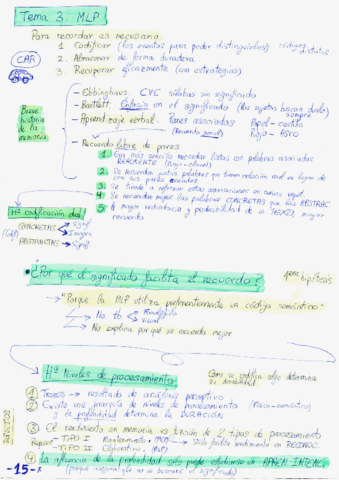 Tema 3: MLP
Para recordar es necesario:
1. Codificar (los eventos para poder distinguirlos) códigos distintos
CAR
2. Almacenar de forma duradera
3. Recuperar eficazmente (con estrategias)
Breve historia de la memoria
- Ebbinghaus. CVC sílabas sin significado
- Bartlett. Énfasis en el significado (los sujetos buscan darlo) siempre
- Aprendizaje verbal. Pares asociados
Papel -
(Recuerdo serial)
Rojo -
- Recuerdo libre de pares
1 Era más sencillo recordar listas con palabras asociadas
2 Se recuerdan juntas palabras que tienen relación
con sus pares
3 Se tiende a
4 Se recuerdan mejor las palabras CONCRETAS que las ABSTRAC
5 A mayor redundancia y predictibilidad de un TEXTO, mayor
recuerdo
Hª codificación dual
CONCRETAS
Imagen
ABSTRACTAS
• ¿Por qué el significado facilita el recuerdo?
hipótesis
→ "Porque la MLP utiliza preferentemente un código semántico"
No, tb
visual
No explica por qué se recuerda mejor
4º Niveles de procesamiento
Como se codifica algo determina su durabilidad
1 Trazos → resultado de análisis perceptivo
2 Existe una jerarquía de niveles de procesamiento (físico - semántico)
y la profundidad determina la DURACIÓN
3 El rendimiento en memoria es función de 2 tipos de procesamiento
Repaso - TIPO I Mantenimiento (MCP) → Sólo facilita rendimiento en RECONOC.
TIPO II Elaborativo (MLP)
4 La influencia de la profundidad sólo puede estudiarse en APREN INTENC.
- 15 -